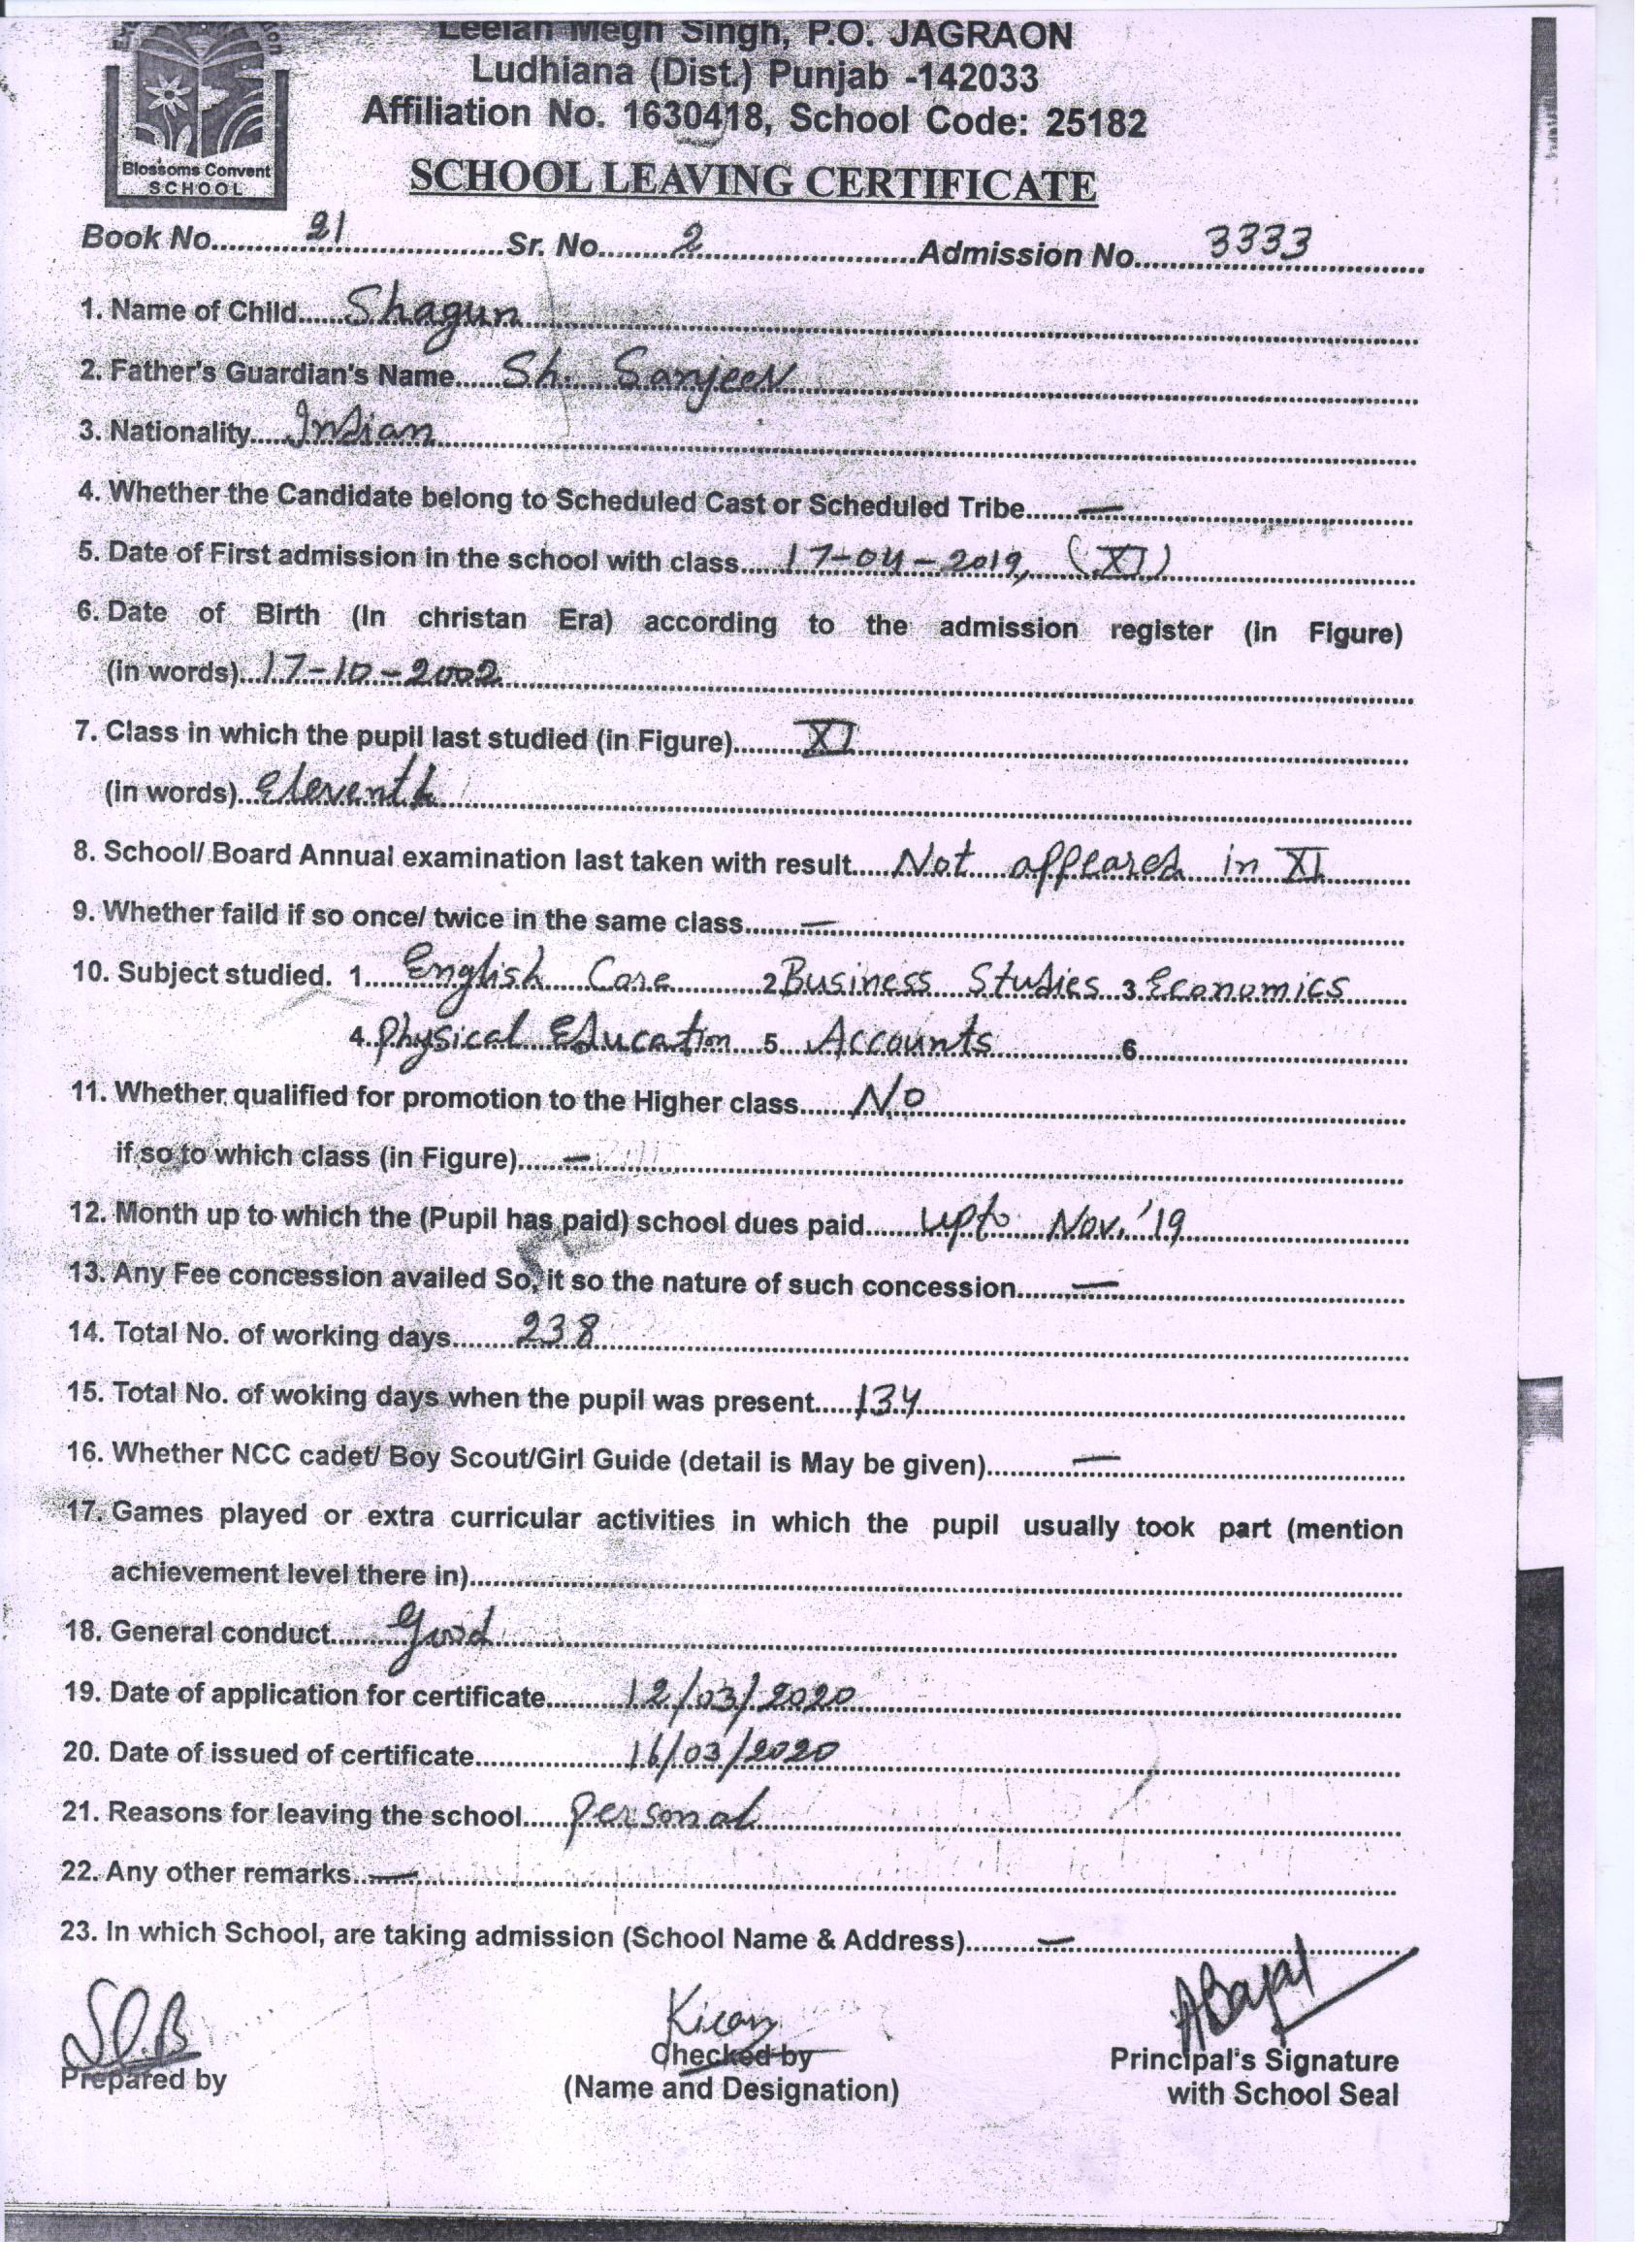 Leelan Megh Singh, P.O. JAGRAON
Ludhiana (Dist.) Punjab -142033
Affiliation No. 1630418, School Code: 25182
Blossoms Convent
SCHOOL
SCHOOL LEAVING CERTIFICATE
Book No. 21 Sr. No. 2 Admission No. 3333
1. Name of Child Shagun
2. Father's Guardian's Name Sh. Sanjeev
3. Nationality Indian
4. Whether the Candidate belong to Scheduled Cast or Scheduled Tribe —
5. Date of First admission in the school with class 17-04-2019, (XI)
6. Date of Birth (In christan Era) according to the admission register (in Figure)
(in words) 17-10-2002
7. Class in which the pupil last studied (in Figure) XI
(in words) Eleventh
8. School/ Board Annual examination last taken with result Not appeared in XI
9. Whether faild if so once/ twice in the same class —
10. Subject studied. 1. English Core 2 Business Studies 3 Economics
4. Physical Education 5 Accounts 6
11. Whether qualified for promotion to the Higher class No
if so to which class (in Figure) —
12. Month up to which the (Pupil has paid) school dues paid upto Nov.'19
13. Any Fee concession availed So, it so the nature of such concession —
14. Total No. of working days 238
15. Total No. of woking days when the pupil was present 134
16. Whether NCC cadet/ Boy Scout/Girl Guide (detail is May be given) —
17. Games played or extra curricular activities in which the pupil usually took part (mention
achievement level there in)
18. General conduct Good
19. Date of application for certificate 12/03/2020
20. Date of issued of certificate 16/03/2020
21. Reasons for leaving the school Personal
22. Any other remarks —
23. In which School, are taking admission (School Name & Address) —
Kiran
Prepared by
Checked by
(Name and Designation)
Principal's Signature
with School Seal